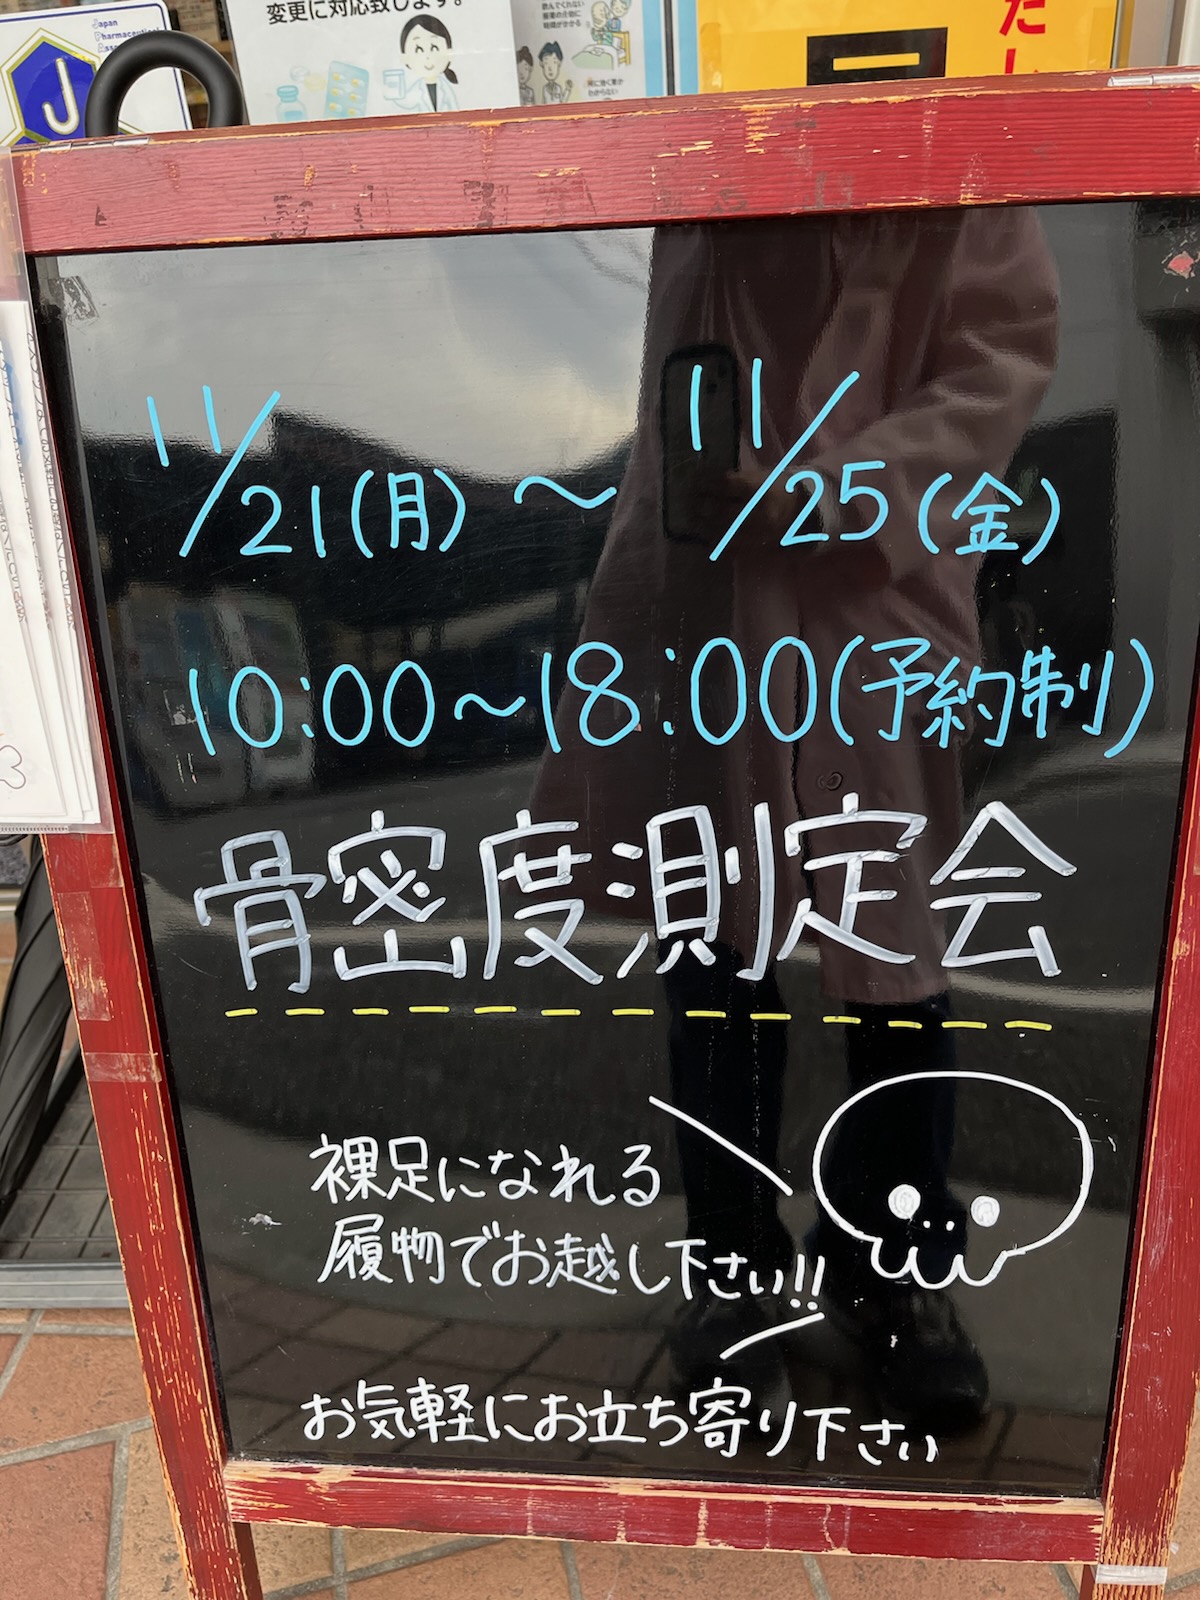 Japan
Pharmaceutical
J
変更に対応致します。
11/21(月)～11/25(金)
10:00～18:00(予約制)
骨密度測定会
裸足になれる
履物でお越し下さい!!
お気軽にお立ち寄り下さい